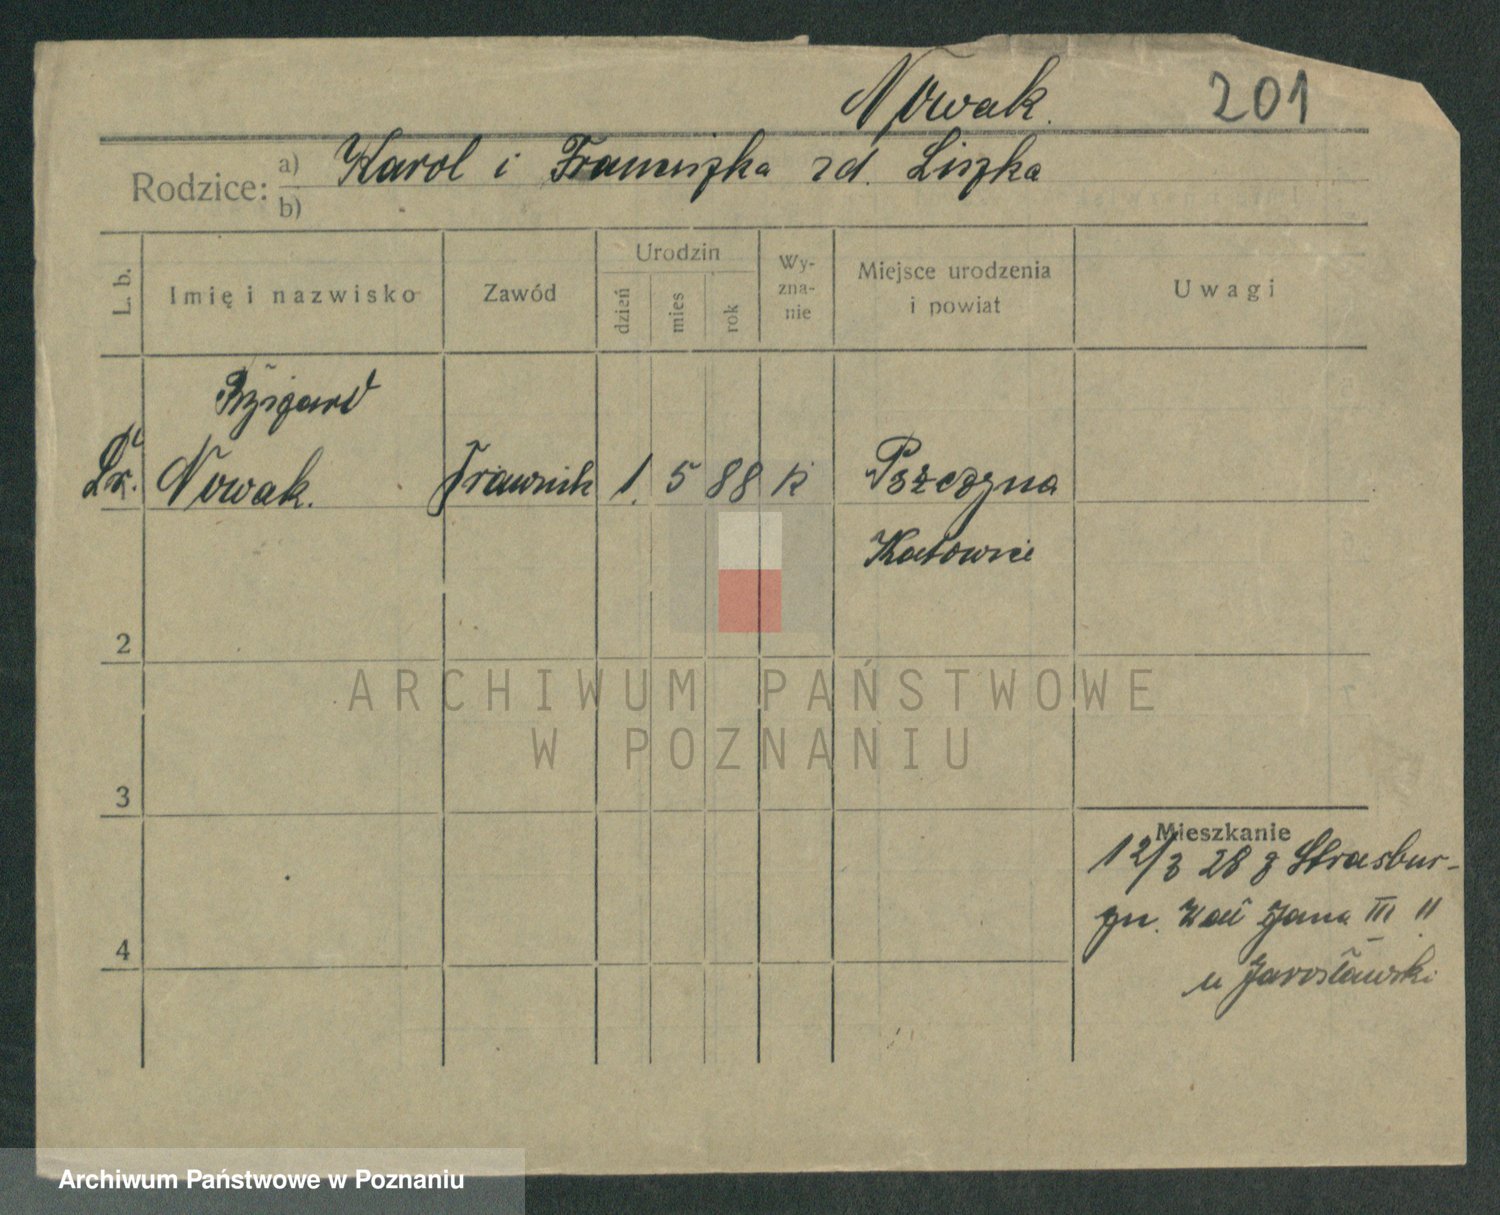 Nowak. 201
Rodzice: a) Karol i Franciszka zd. Liszka
b)
L. b. Imię i nazwisko Zawód Urodzin dzień mies rok Wyznanie Miejsce urodzenia i powiat Uwagi
Dr. Nowak. 1. 5 88 K Pszczyna
Katowice
2
3
4
Mieszkanie
12/3 28 z Strasbur-
Jana III 11
u Jarosławski
ARCHIWUM PAŃSTWOWE
W POZNANIU
Archiwum Państwowe w Poznaniu